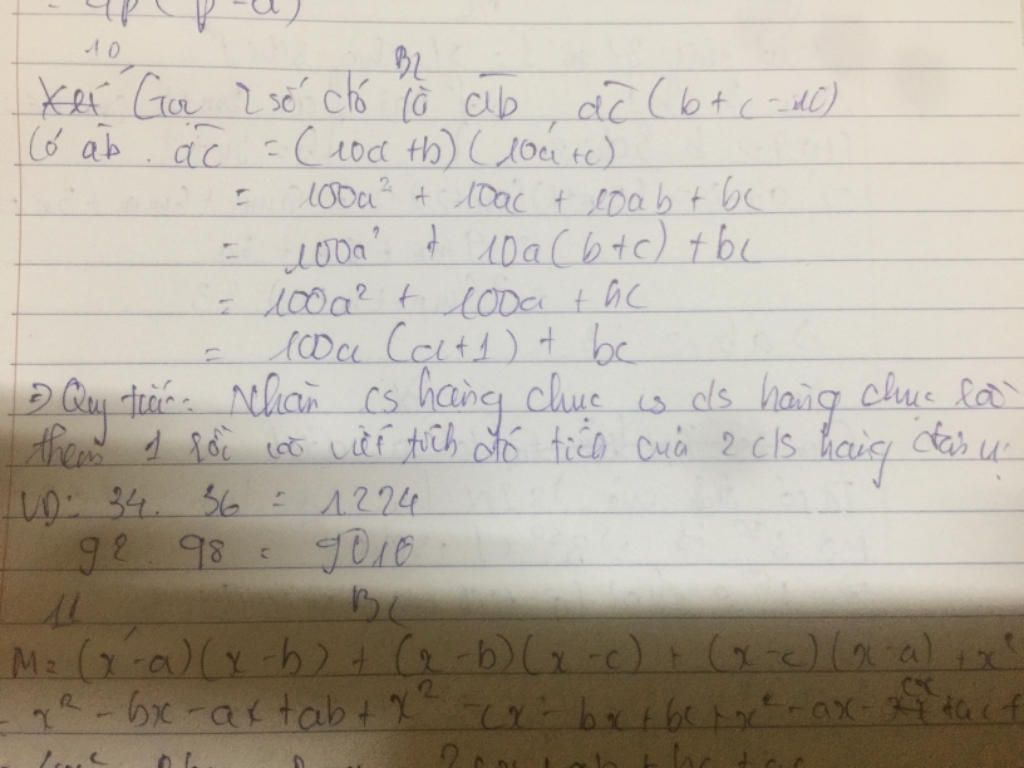 = 4p(p-a)
10
BL
Xét Gọi 2 số đó là ab, ac (b+c=10)
Có ab . ac = (10a+b)(10a+c)
= 100a² + 10ac + 10ab + bc
= 100a² + 10a(b+c) + bc
= 100a² + 100a + bc
= 100a (a+1) + bc
=> Quy tắc: Nhân cs hàng chục vs cs hàng chục
thêm 1 rồi viết tích đó tích của 2 c/s hàng
VD: 34. 36 = 1224
92. 98 = 9016
11
BL
M = (x-a)(x-b) + (x-b)(x-c) + (x-c)(x-a) + x²
= x² - bx - ax + ab + x² - cx - bx + bc + x² - ax - cx + ac +